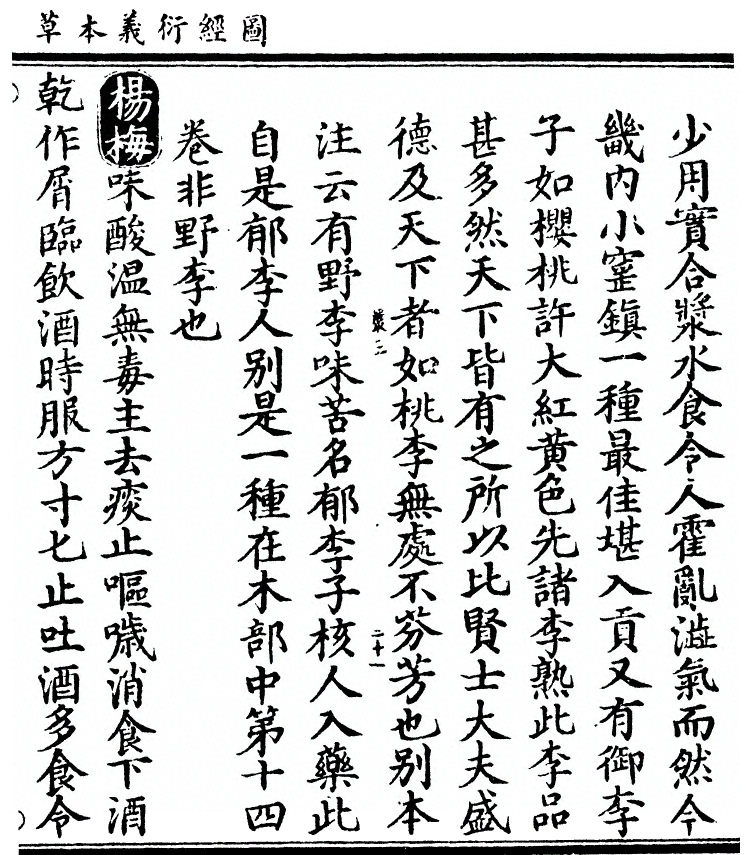 圖經衍義本草
少用實合漿水食令人霍亂澁氣而然今
畿内小窰鎮一種最佳堪入貢又有御李
子如櫻桃許大紅黄色先諸李熟此李品
甚多然天下皆有之所以比賢士大夫盛
德及天下者如桃李無處不芬芳也别本
三 二十一
注云有野李味苦名郁李子核人入藥此
自是郁李人别是一種在木部中第十四
卷非野李也
楊梅味酸温無毒主去痰止嘔噦消食下酒
乾作屑臨飲酒時服方寸匕止吐酒多食令